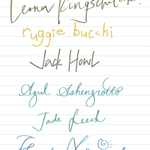 Leona Kingscholar
ruggie bucchi
Jack Howl
Azul Ashengrotto
Jade Leech